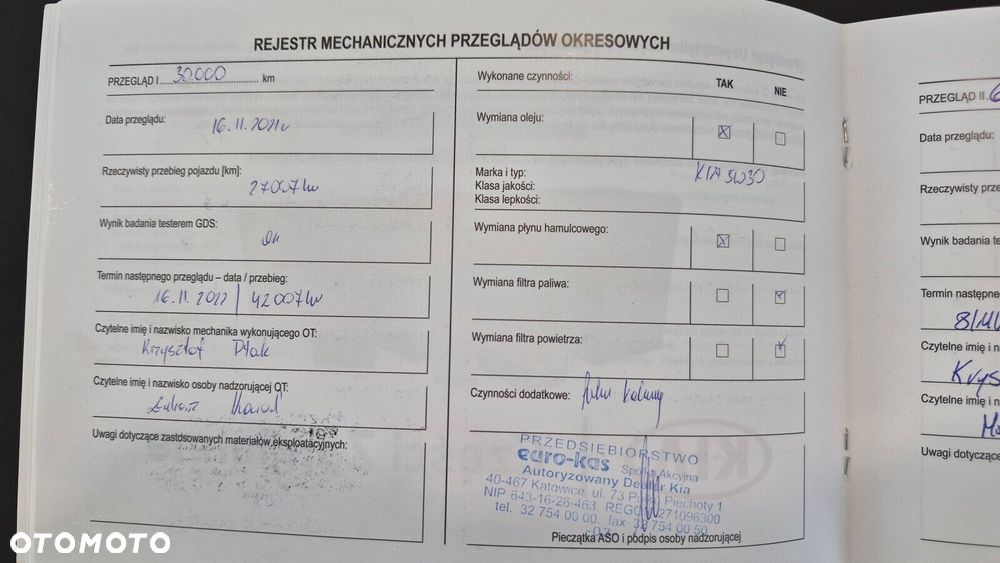 REJESTR MECHANICZNYCH PRZEGLĄDÓW OKRESOWYCH
PRZEGLĄD I 30000 km
Data przeglądu:
16.11.2021r
Rzeczywisty przebieg pojazdu [km]:
27007km
Wynik badania testerem GDS:
ok
Termin następnego przeglądu – data / przebieg:
16.11.2022 / 42007km
Czytelne imię i nazwisko mechanika wykonującego OT:
Krzysztof Ptak
Czytelne imię i nazwisko osoby nadzorującej OT:
Łukasz
Uwagi dotyczące zastosowanych materiałów eksploatacyjnych:
Wykonane czynności: TAK NIE
Wymiana oleju:
Marka i typ: KIA 5W30
Klasa jakości:
Klasa lepkości:
Wymiana płynu hamulcowego:
Wymiana filtra paliwa:
Wymiana filtra powietrza:
Czynności dodatkowe:
PRZEDSIĘBIORSTWO
euro-kas Spółka Akcyjna
Autoryzowany Dealer Kia
40-467 Katowice, ul. 73 Pułku Piechoty 1
NIP 643-16-26-463, REGON 271096300
tel. 32 754 00 00, fax 32 754 00 50
Pieczątka ASO i podpis osoby nadzorującej
PRZEGLĄD II 6
Data przeglądu:
Rzeczywisty prze
Wynik badania te
Termin następneg
8/
Czytelne imię i n
Krys
Czytelne imię i n
Uwagi dotyczące
OTOMOTO